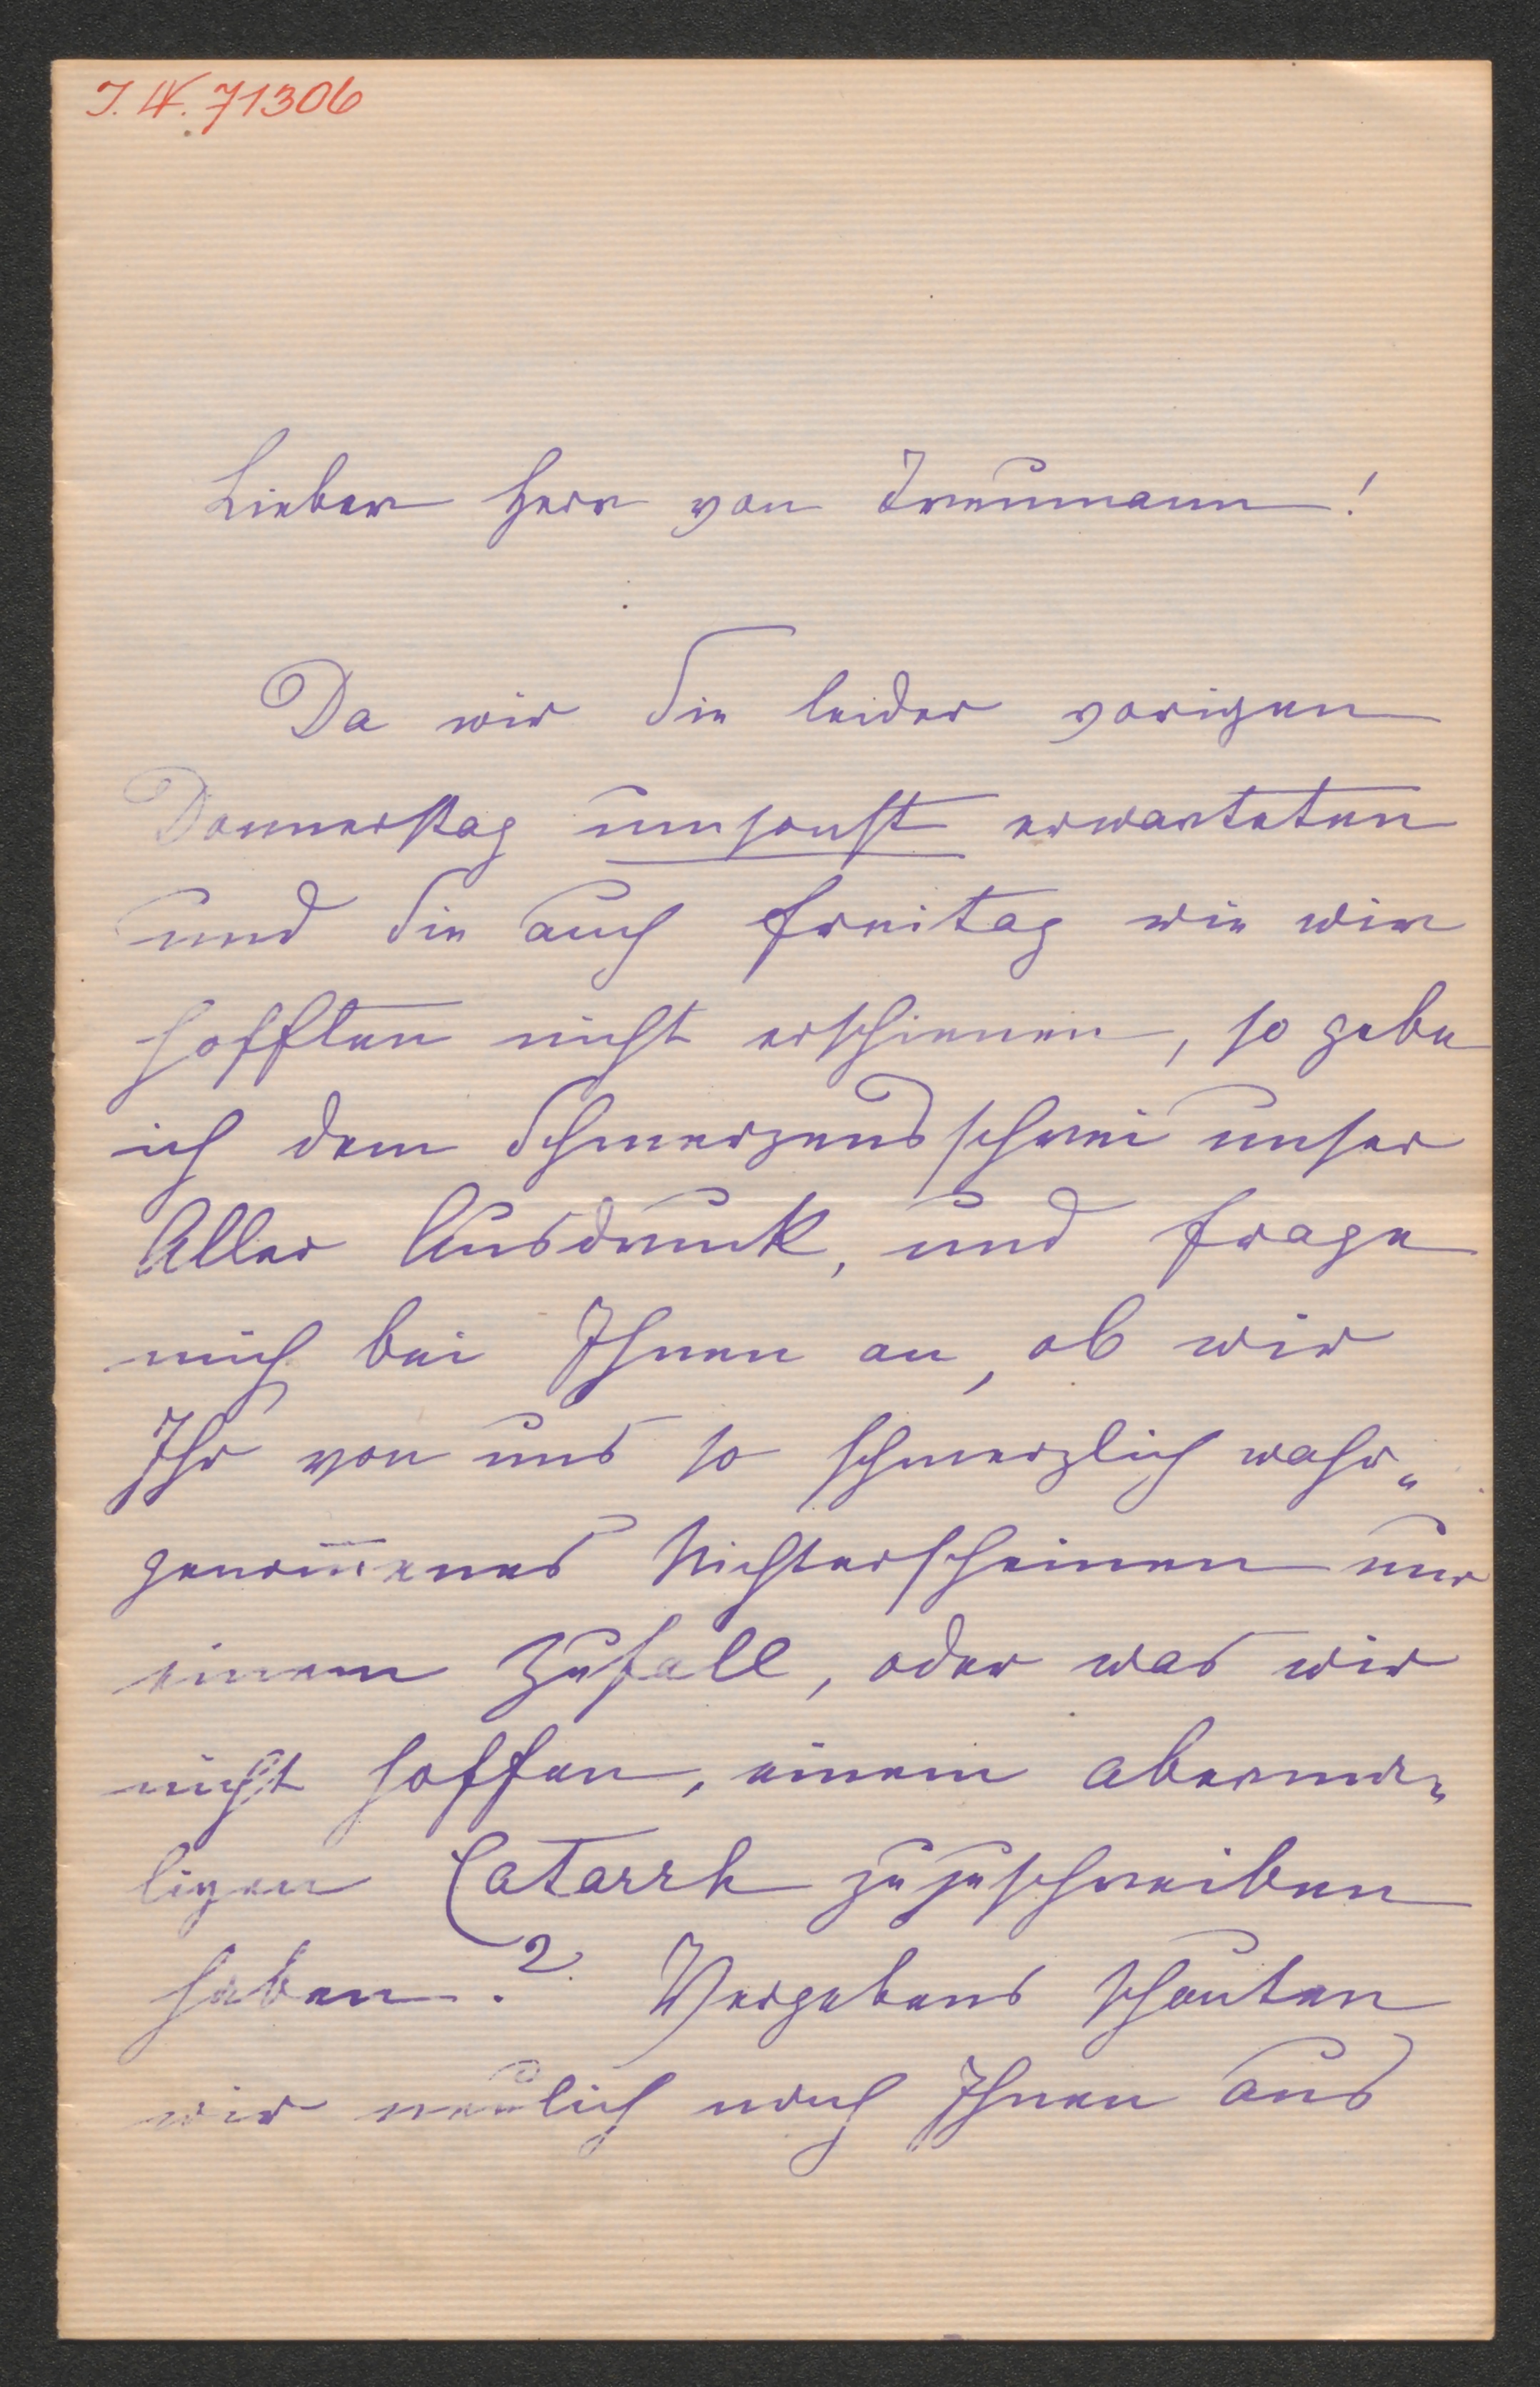 I.N. 71306
Lieber Herr von Treumann!
Da wir Sie leider vorigen
Donnerstag umsonst erwarteten
und Sie auch Freitag wie wir
hofften nicht erschienen, so gebe
ich dem Schmerzensschrei unser
Aller Ausdruck, und frage
mich bei Ihnen an, ob wir
Ihr von uns so schmerzlich wahr„
genom̄enes Nichterscheinen nur
einem Zufall, oder was wir
nicht hoffen, einem aberma„
ligen Catarrh zuzuschreiben
haben.? Vergebens schauten
wir neulich nach Ihnen aus